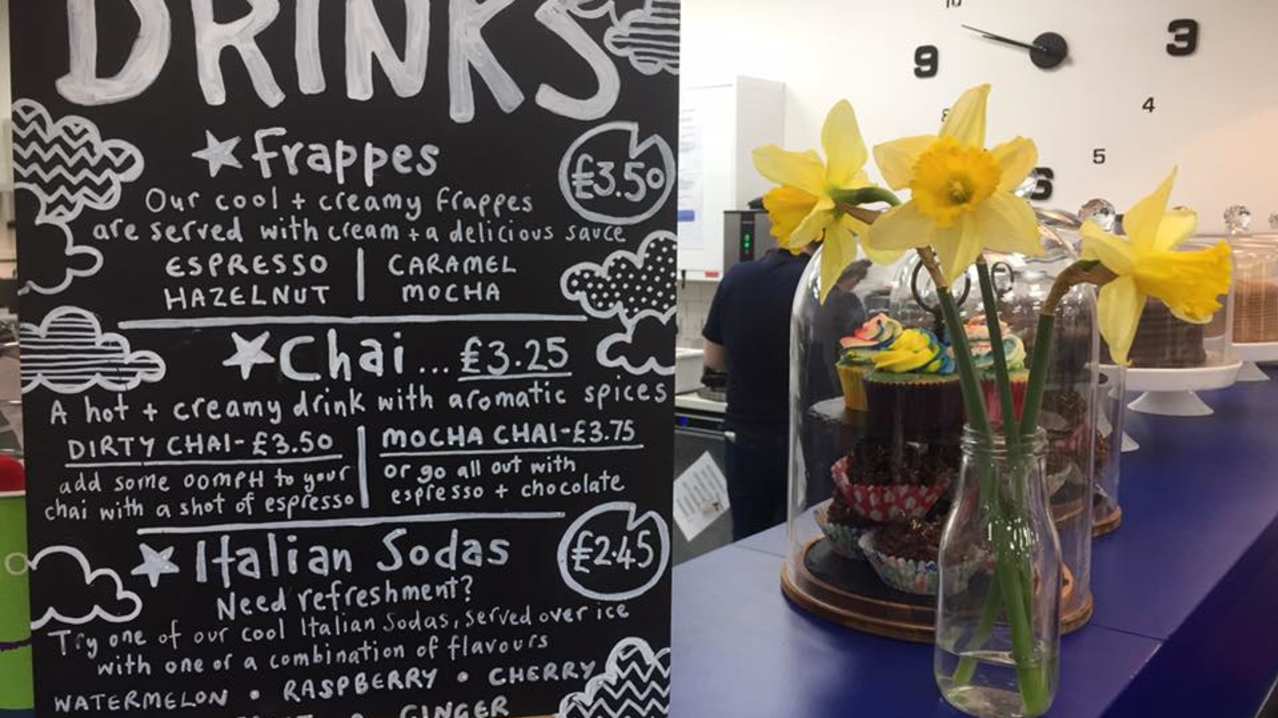 DRINKS
Frappes
£3.50
Our cool + creamy frappes
are served with cream + a delicious sauce
ESPRESSO | CARAMEL
HAZELNUT | MOCHA
Chai... £3.25
A hot + creamy drink with aromatic spices
DIRTY CHAI - £3.50
add some oomph to your
chai with a shot of espresso
MOCHA CHAI - £3.75
or go all out with
espresso + chocolate
Italian Sodas
£2.45
Need refreshment?
Try one of our cool Italian Sodas, served over ice
with one or a combination of flavours
WATERMELON • RASPBERRY • CHERRY
GINGER
10
9
3
8
4
5
6